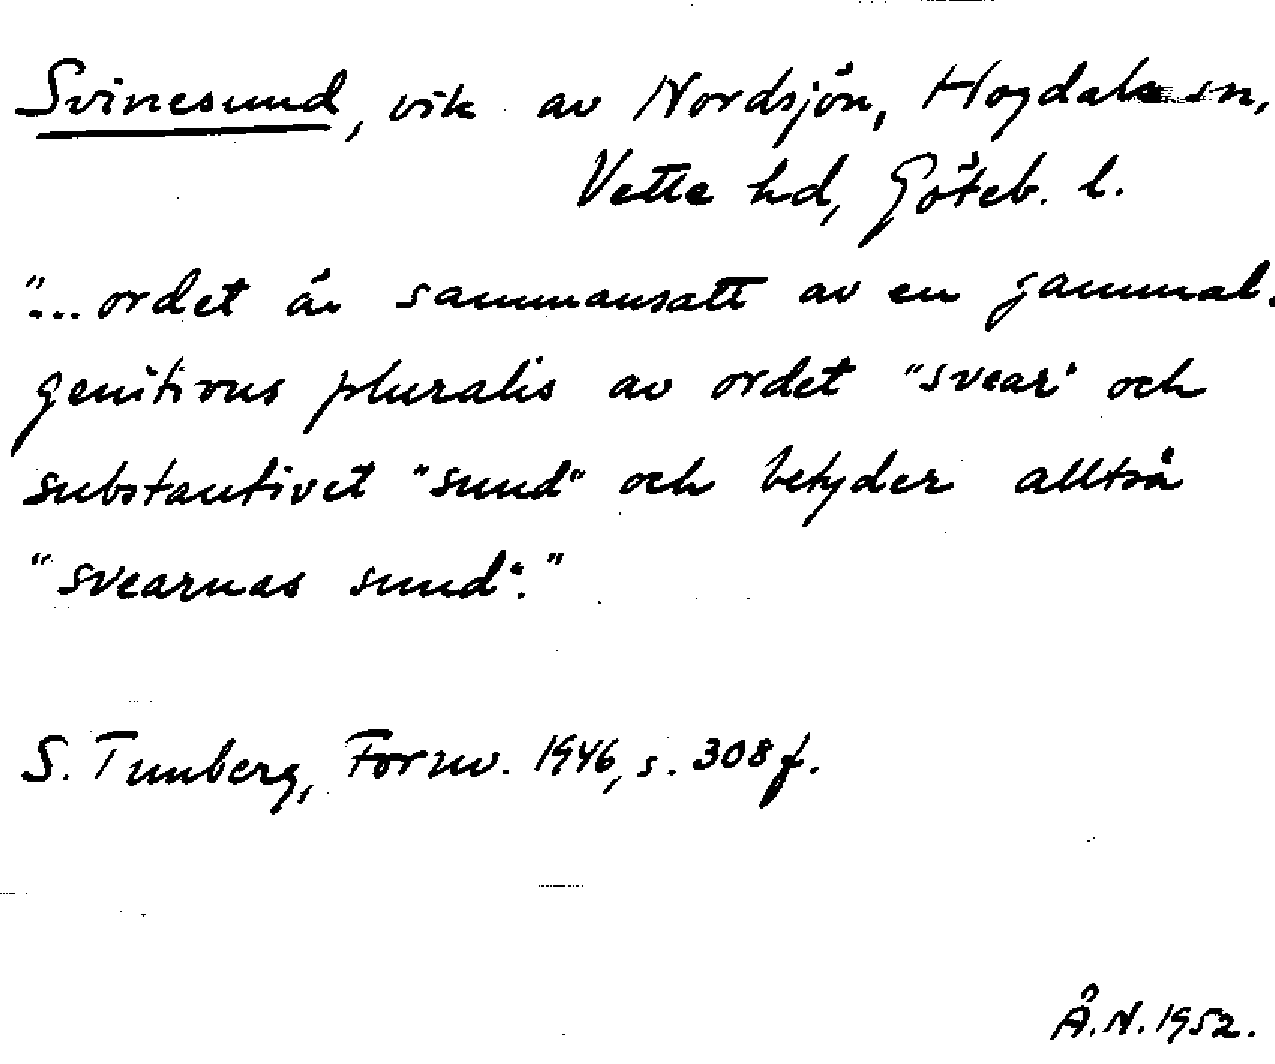 Svinesund, vik av Nordsjön, Hogdals sn,
Vette hd, Göteb. l.
"... ordet är sammansatt av en gammal
genitivus pluralis av ordet "svear" och
substantivet "sund" och betyder alltså
"svearnas sund"."
S. Tunberg, Fornv. 1946, s. 308 f.
Å.N. 1952.